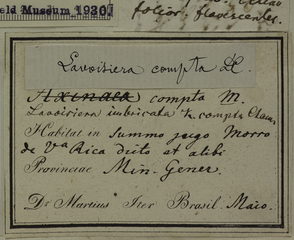 Field Museum 1930
folior. flavescentes.
Lavoisiera compta DC.
Axinaea compta M.
Lavoisiera imbricata & compta Cham.
Habitat in summo jugo Morro
de Va Rica dicto et alibi
Provinciae Min. Gener.
Dr Martius Iter Brasil. Maio.